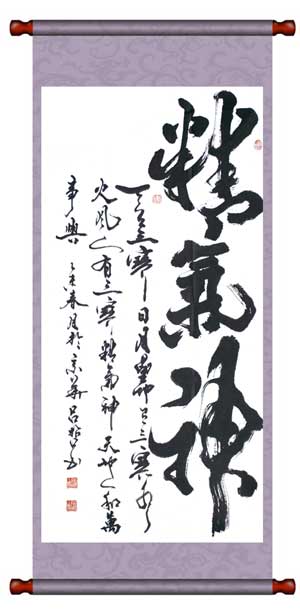 精氣神
天有三寶日月星地有三寶水
火風人有三寶精氣神天地人和萬
事興
乙未春月於京華吕